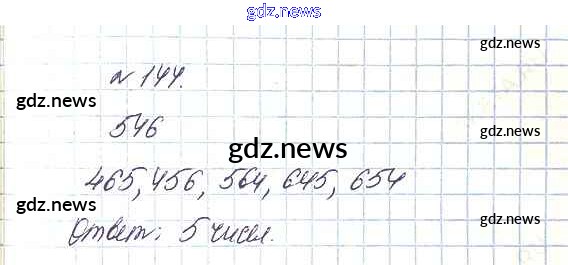 gdz.news
gdz.news
№ 144.
gdz.news
546
gdz.news
gdz.news
465, 456, 564, 645, 654
gdz.news
gdz.news
Ответ: 5 чисел.